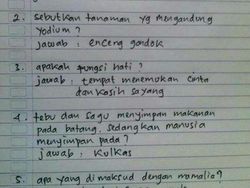 2. sebutkan tanaman yg mengandung
yodium?
jawab: enceng gondok
3. apakah fungsi hati?
jawab: tempat menemukan cinta
dan kasih sayang
4. tebu dan sagu menyimpan makanan
pada batang, sedangkan manusia
menyimpan pada?
jawab: kulkas
5. apa yang dimaksud dengan mamalia?